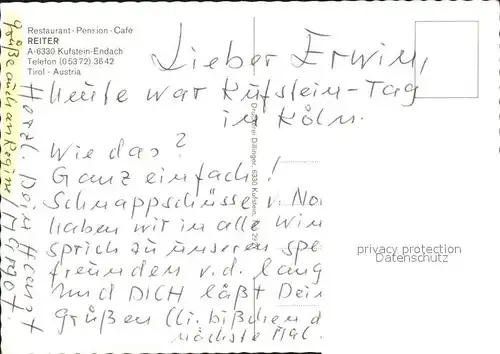 Restaurant - Pension - Café
REITER
A-6330 Kufstein-Endach
Telefon (05372) 3642
Tirol - Austria
Lieber Erwin,
heute war Kufstein-Tag
in Köln.
Wie das?
Ganz einfach!
Schnappschüsse v. No
haben wir in alle Win
sprich zu unseren spe
freunden v.d. lang
und DICH läßt Dein
grüßen (li. bißchen d
nächste Mal.
Herzl. Dein
Grüße auch an Regine/Margot.
Druckerei Dillinger, 6330 Kufstein,
privacy protection
Datenschutz